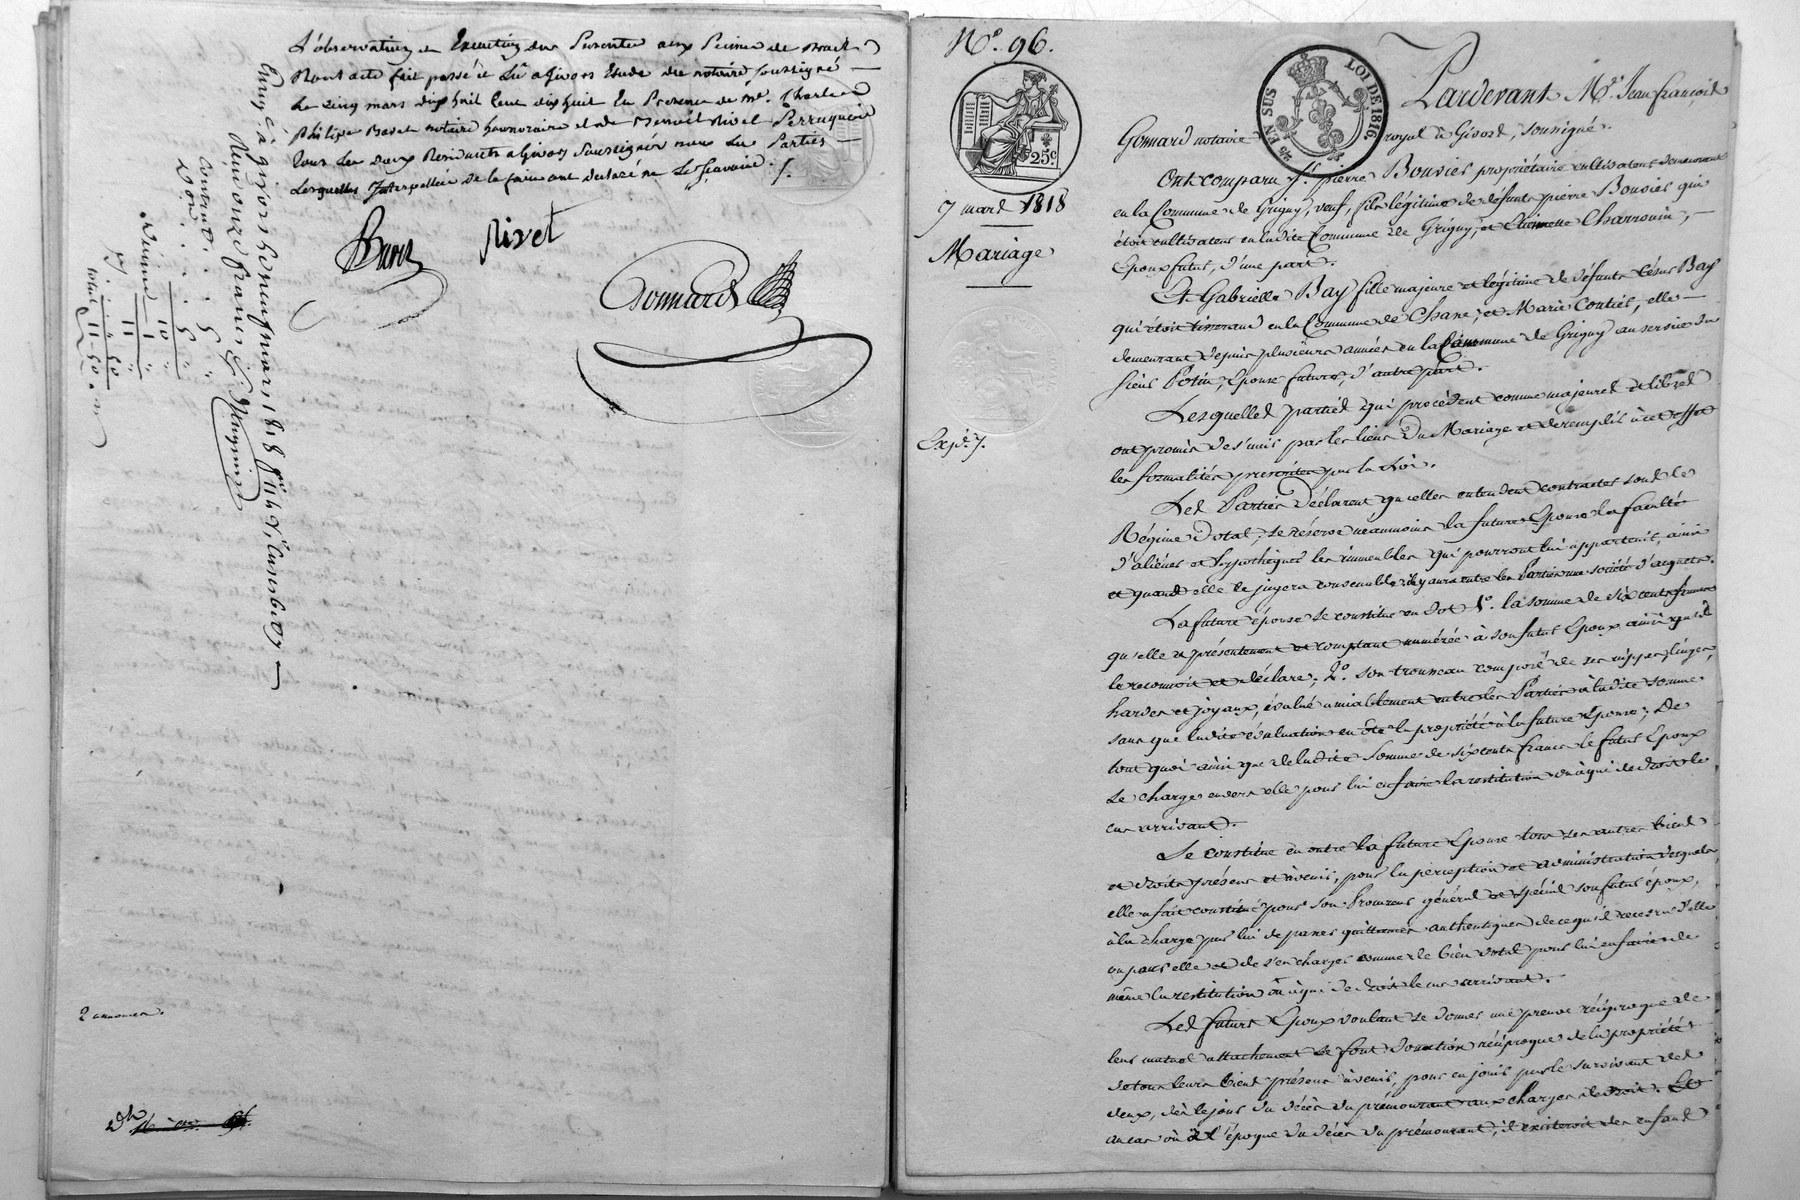 L'observation et Execution des Presentes aux Peines de Droit
Dont acte fait passé et Lû a Givors Etude du notaire soussigné
Le cinq mars dix huit Cent dix huit En Presence de Mr. Charles
philipe notaire honnoraire et de Benoit Rivet Perruquier
tous les deux Residents a Givors soussignés non les Parties
Lesquelles Interpellées de le faire ont declaré ne le scavoir ./.
Rivet
Gonnard
Enregé à givors le neuf mars 1818
Reçu onze francs
contrat . . 5 "
Don . . . 5 "
10 "
Décime 1 "
11 "
" 50
total 11 50
2 annonces.
No. 96.
25c
7 mars 1818
Mariage
Expé. 7.
EN SUS
LOI DE 1816.
Pardevant Me. Jean françois
Gonnard notaire royal à Givors, soussigné.
Ont comparu Sr. pierre Bouvier propriétaire cultivateur demeurant
en la Commune de Grigny, veuf, fils légitime de défunts pierre Bouvier qui
étoit cultivateur en ladite Commune de Grigny, et Etiennette Charronin,
Epoux futur, d'une part.
Et Gabrielle Bay fille majeure et légitime de défunts Césus Bay
qui étoit tisserand en la Commune de Chane, et Marie Coutier, elle
demeurant depuis plusieurs années en la Commune de Grigny au service du
sieur Potin, Epouse future, d'autre part.
Lesquelles parties qui procèdent comme majeures et libres
ont promis de s'unir par les liens du Mariage et de remplir à cet effet
les formalités prescrites par la Loi.
Les Parties déclarent qu'elles entendent contracter sous le
Régime Dotal, se réserve néanmoins la future Epouse la faculté
d'aliéner et hypothéquer les immeubles qui pourront lui appartenir, ainsi
et quand elle le jugera convenable; il y aura entre les Parties une société d'acquets.
La future épouse se constitue en dot 1o. la somme de six cents francs
qu'elle a présentement et comptant numérée à son futur Epoux ainsi qu'il
le reconnoit et déclare; 2o. son trousseau composé de ses nippes, linges,
hardes et joyaux, évalué amiablement entre les Parties à ladite somme
sans que ladite évaluation en ôte la propriété à la future Epouse; De
tout quoi ainsi que de ladite somme de six cents francs le futur Epoux
se charge envers elle pour lui en faire la restitution ou à qui de droit le
cas arrivant.
Se constitue en outre la future Epouse tous ses autres biens
et droits présens et àvenir, pour la perception et administration desquels
elle a fait constitué pour son Procureur général et spécial son futur époux,
à la charge par lui de passer quittances authentiques de ce qu'il recevra d'elle
ou pour elle et de s'en charger comme de bien dotal pour lui en faire de
même la restitution ou à qui de droit le cas arrivant.
Les futurs Epoux voulant se donner une preuve réciproque de
leur mutuel attachement se font donation réciproque de la propriété
de tous leurs biens présens àvenir, pour en jouir par le survivant des
deux, dès le jour du décès du prémourant aux charges de droit. Et
au cas où à l'époque du décès du prémourant, il existeroit des enfans